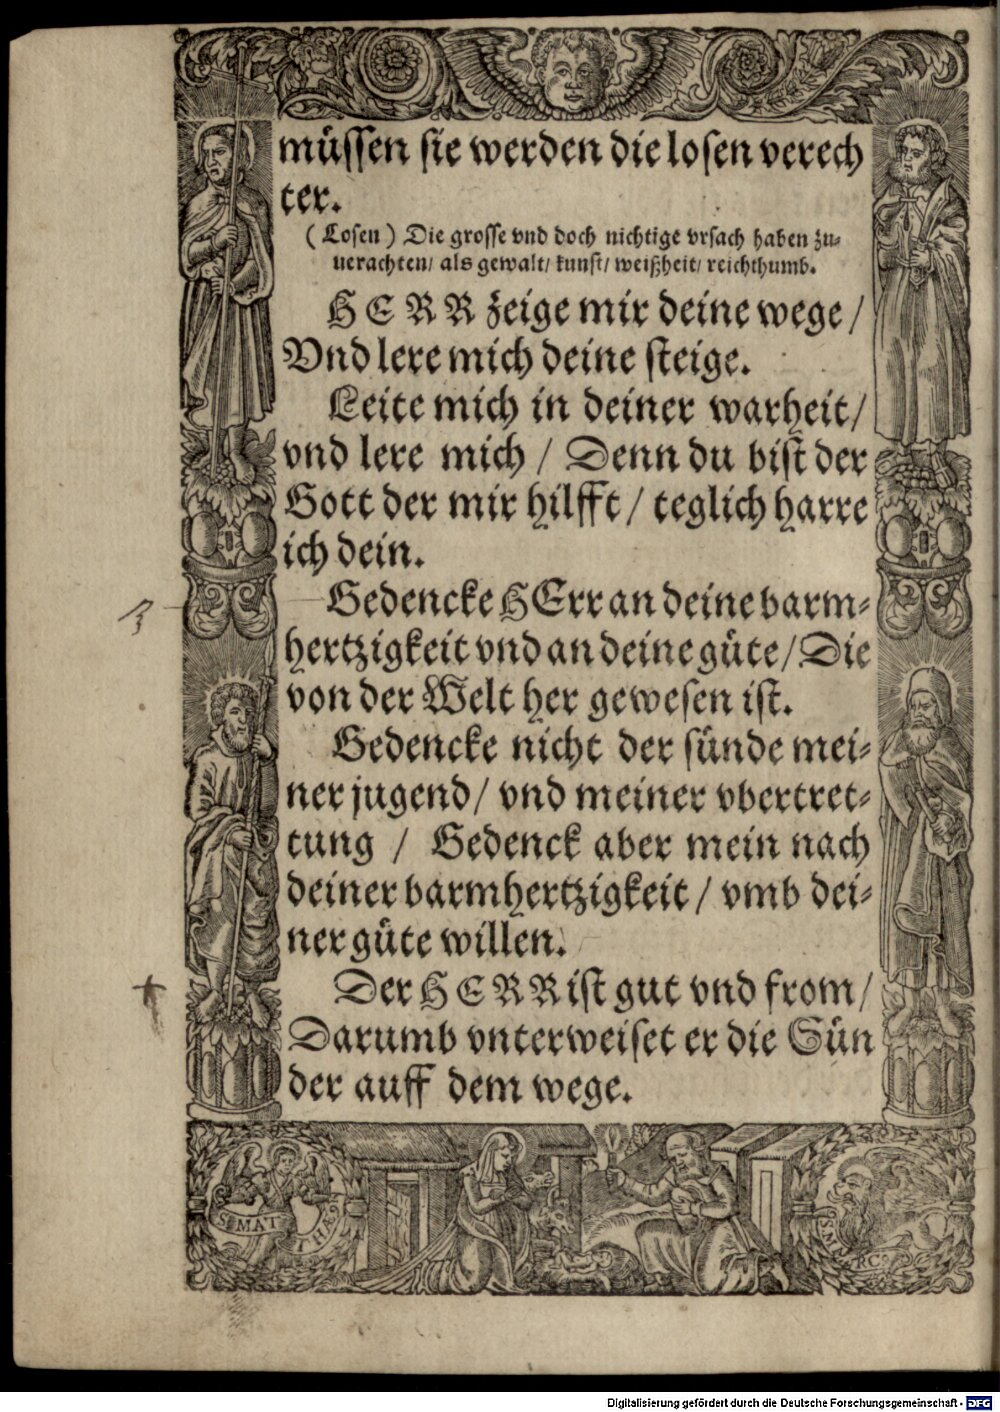 müssen sie werden die losen verech
ter.
( Losen ) Die grosse vnd doch nichtige vrsach haben zu⸗
uerachten/ als gewalt/ kunst/ weißheit/ reichthumb.
HERR zeige mir deine wege /
Vnd lere mich deine steige.
Leite mich in deiner warheit/
vnd lere mich / Denn du bist der
Gott der mir hilfft / teglich harre
ich dein.
Gedencke HErr an deine barm⸗
hertzigkeit vnd an deine güte/ Die
von der Welt her gewesen ist.
Gedencke nicht der sünde mei⸗
ner jugend/ vnd meiner vbertret⸗
tung / Gedenck aber mein nach
deiner barmhertzigkeit / vmb dei⸗
ner güte willen.
Der HERR ist gut vnd from/
Darumb vnterweiset er die Sün
der auff dem wege.
S. MATTHÆ
S. MARC
Digitalisierung gefördert durch die Deutsche Forschungsgemeinschaft - DFG